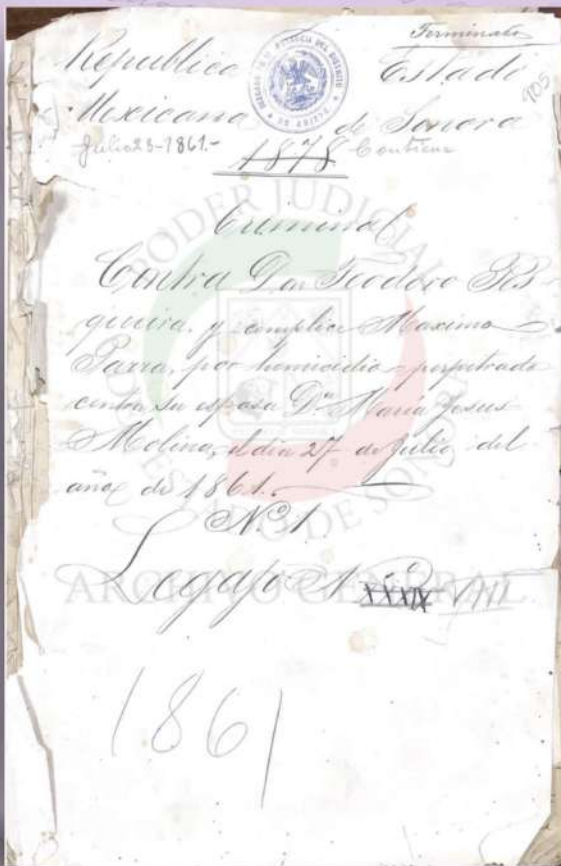 Terminado
Republica Estado
705
Mexicana de Sonora
Julio 23-1861.-
1878 Contiene
Criminal
Contra Don Teodoro Pes-
queira, y complice Maximo
Parra, por homicidio perpetrado
contra su esposa Dª Maria Jesus
Molina, el dia 27 de Julio del
año de 1861.
N.º 1
Legajo 1º XXXIX VIII
1861
PODER JUDICIAL
DEL ESTADO DE SONORA
ARCHIVO GENERAL
DE ARIZPE